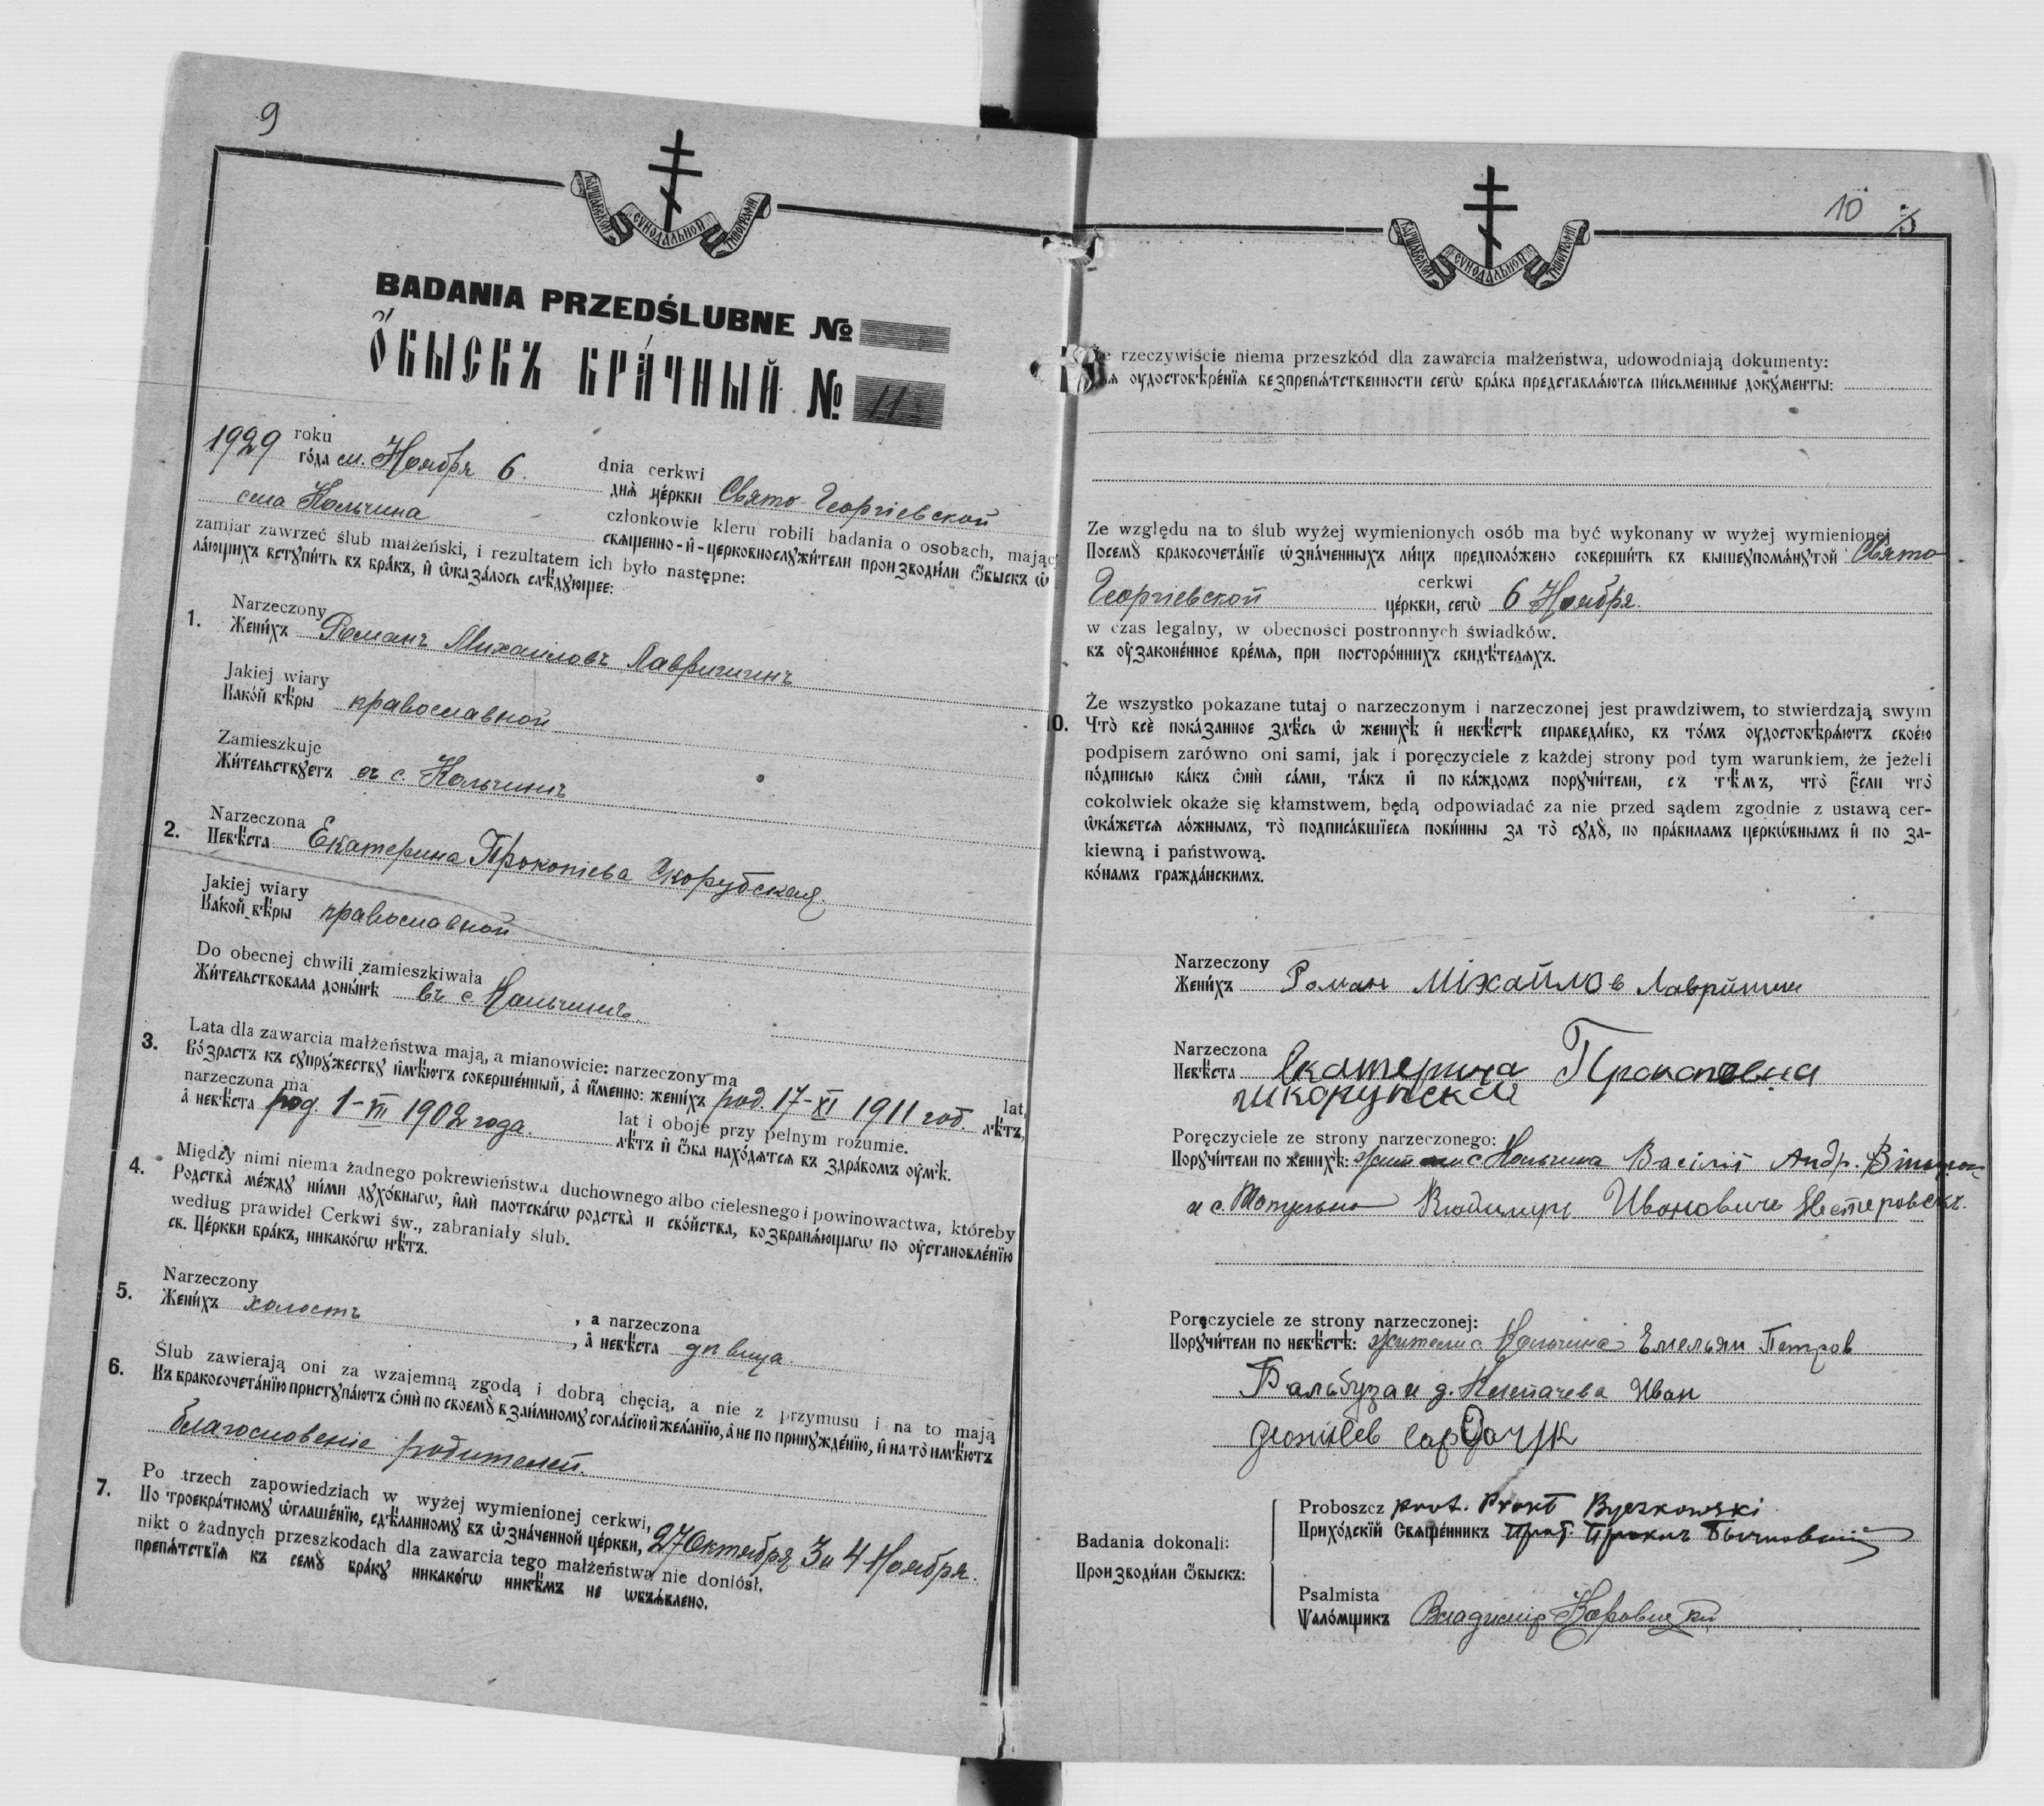 9
ВАРШАВСКОЙ СѴНОДАЛЬНОЙ ТИПОГРАФІИ
BADANIA PRZEDŚLUBNE №
Ѻ҆БЫСКЪ БРА́ЧНЫЙ № 11
1929 roku
го́да см. Ноября 6. dnia cerkwi
днѧ̀ це́ркви Свято-Георгіевской
села Кольчина członkowie kleru robili badania o osobach, mając
свѧще́нно-и҆-церковнослꙋжи́тели производи́ли ѻ҆́быскъ ѡ҆
zamiar zawrzeć ślub małżeński, i rezultatem ich było następne:
ла́ющихъ встꙋпи́ть въ бра́къ, и҆ ѡ҆каза́лось слѣ́дꙋющее:
1. Narzeczony
Жени́хъ Романъ Михаиловъ Лавришинъ
Jakiej wiary
Како́й вѣ́ры православной
Zamieszkuje
Жи́тельствꙋетъ въ с. Кольчинѣ
2. Narzeczona
Невѣ́ста Екатерина Прокопіева Скорубская.
Jakiej wiary
Како́й вѣ́ры православной
Do obecnej chwili zamieszkiwała
Жи́тельствовала доны́нѣ въ с Кольчинѣ.
3. Lata dla zawarcia małżeństwa mają, a mianowicie: narzeczony ma
Во́зрастъ къ сꙋпрꙋ́жествꙋ и҆мѣ́ютъ соверше́нный, а҆ и҆́менно: жени́хъ род. 17-XI 1911 год. lat,
лѣ́тъ,
narzeczona ma
а҆ невѣ́ста род. 1-VII 1902 года. lat i oboje przy pełnym rozumie.
лѣ́тъ и҆ ѻ҆́ба нахо́дѧтсѧ въ здра́вомъ ᲂу҆мѣ̀.
4. Między nimi niema żadnego pokrewieństwa duchownego albo cielesnego i powinowactwa, któreby
Родства̀ ме́ждꙋ ни́ми дꙋхо́внагѡ, и҆лѝ плотска́гѡ родства̀ и сво́йства, возбранѧ́ющагѡ по ᲂу҆становле́нїю
według prawideł Cerkwi św., zabraniały ślub.
св. Це́ркви бра́къ, никако́гѡ нѣ́тъ.
5. Narzeczony
Жени́хъ холостъ , a narzeczona
, а҆ невѣ́ста дѣвица.
6. Ślub zawierają oni za wzajemną zgodą i dobrą chęcią, a nie z przymusu i na to mają
Къ бракосочета́нїю пристꙋпа́ютъ ѻ҆нѝ по своемꙋ̀ взаи́мномꙋ согла́сїю и҆ жела́нїю, а҆ не по принꙋжде́нїю, и҆ на то̀ и҆мѣ́ютъ
благословеніе родителей.
7. Po trzech zapowiedziach w wyżej wymienionej cerkwi,
По троекра́тномꙋ ѡ҆глаше́нїю, сдѣ́ланномꙋ въ ѡ҆зна́ченной це́ркви, 27 Октября, 3 и 4 Ноября.
nikt o żadnych przeszkodach dla zawarcia tego małżeństwa nie doniósł.
препѧ́тствїѧ къ семꙋ̀ бра́кꙋ никако́гѡ никѣ́мъ не ѡ҆бъѧ́влено.
10
ВАРШАВСКОЙ СѴНОДАЛЬНОЙ ТИПОГРАФІИ
rzeczywiście niema przeszkód dla zawarcia małżeństwa, udowodniają dokumenty:
ᲂу҆достовѣре́нїѧ безпрепѧ́тственности сегѡ̀ бра́ка представлѧ́ютсѧ пи́сьменные докꙋ́менты:
Ze względu na to ślub wyżej wymienionych osób ma być wykonany w wyżej wymienionej
Посемꙋ̀ бракосочета́нїе ѡ҆зна́ченныхъ ли́цъ предполо́жено соверши́ть въ вышеꙋпомѧ́нꙋтой Свято
Георгіевской cerkwi
це́ркви, сегѡ̀ 6 Ноября.
w czas legalny, w obecności postronnych świadków.
въ ᲂу҆законе́нное вре́мѧ, при посторо́ннихъ свидѣ́телѧхъ.
0. Że wszystko pokazane tutaj o narzeczonym i narzeczonej jest prawdziwem, to stwierdzają swym
Что̀ всѐ пока́занное здѣ́сь ѡ҆ женихѣ̀ и҆ невѣ́стѣ справедли́во, въ то́мъ ᲂу҆достовѣрѧ́ютъ свое́ю
podpisem zarówno oni sami, jak i poręczyciele z każdej strony pod tym warunkiem, że jeżeli
по́дписью ка́къ ѻ҆нѝ са́ми, та́къ и҆ по ка́ждомъ порꙋчи́тели, съ тѣ́мъ, что̀ є҆́сли что̀
cokolwiek okaże się kłamstwem, będą odpowiadać za nie przed sądem zgodnie z ustawą cer-
ѡ҆ка́жетсѧ ло́жнымъ, то̀ подписа́вшїесѧ пови́нны за то̀ сꙋдꙋ̀, по пра́виламъ церко́внымъ и҆ по за-
kiewną i państwową.
ко́намъ гражда́нскимъ.
Narzeczony
Жени́хъ Роман Міхайлов Лаврйшин
Narzeczona
Невѣ́ста Екатерина Прокопевна
шкорупская
Poręczyciele ze strony narzeczonego:
Порꙋчи́тели по женихѣ̀: жит с Кольчина Васіліі Андр.
и с. Иванович Нестеровскъ.
Poręczyciele ze strony narzeczonej:
Порꙋчи́тели по невѣ́стѣ: жители с Кольчина Емельян Петров
Бальбуза и д. Иван
сардачук
Badania dokonali:
Производи́ли ѻ҆́быскъ:
Proboszcz prot. Prokł Byczkowski
Прихо́дскїй Свѧще́нникъ Прот. Проклъ Бычковскій
Psalmista
Ѱало́мщикъ Владимир Коровицкій